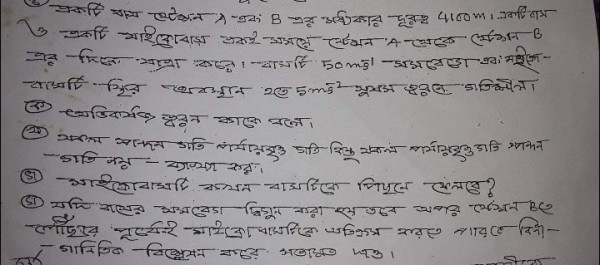 একটি বাস স্টেশন A এবং B এর মধ্যকার দূরত্ব 4100m। একটি বাস
ও একটি মাইক্রোবাস একই সময়ে স্টেশন A থেকে স্টেশন B
এর দিকে যাত্রা করে। বাসটি 50ms⁻¹ সমবেগে এবং মাইক্রো-
বাসটি স্থির অবস্থান হতে 5ms⁻² সুষম ত্বরণে গতিশীল।
(ক) অভিকর্ষজ ত্বরণ কাকে বলে।
(খ) সকল স্পন্দন গতি পর্যায়বৃত্ত গতি কিন্তু সকল পর্যায়বৃত্ত গতি স্পন্দন
গতি নয় – ব্যাখ্যা কর।
(গ) মাইক্রোবাসটি কখন বাসটিকে পিছনে ফেলবে?
(ঘ) যদি বাসের সমবেগ দ্বিগুন করা হয় তবে অপর স্টেশন B তে
পৌঁছার পূর্বেই মাইক্রোবাসটিকে অতিক্রম করতে পারবে কিনা–
গানিতিক বিশ্লেষন করে মতামত দাও।